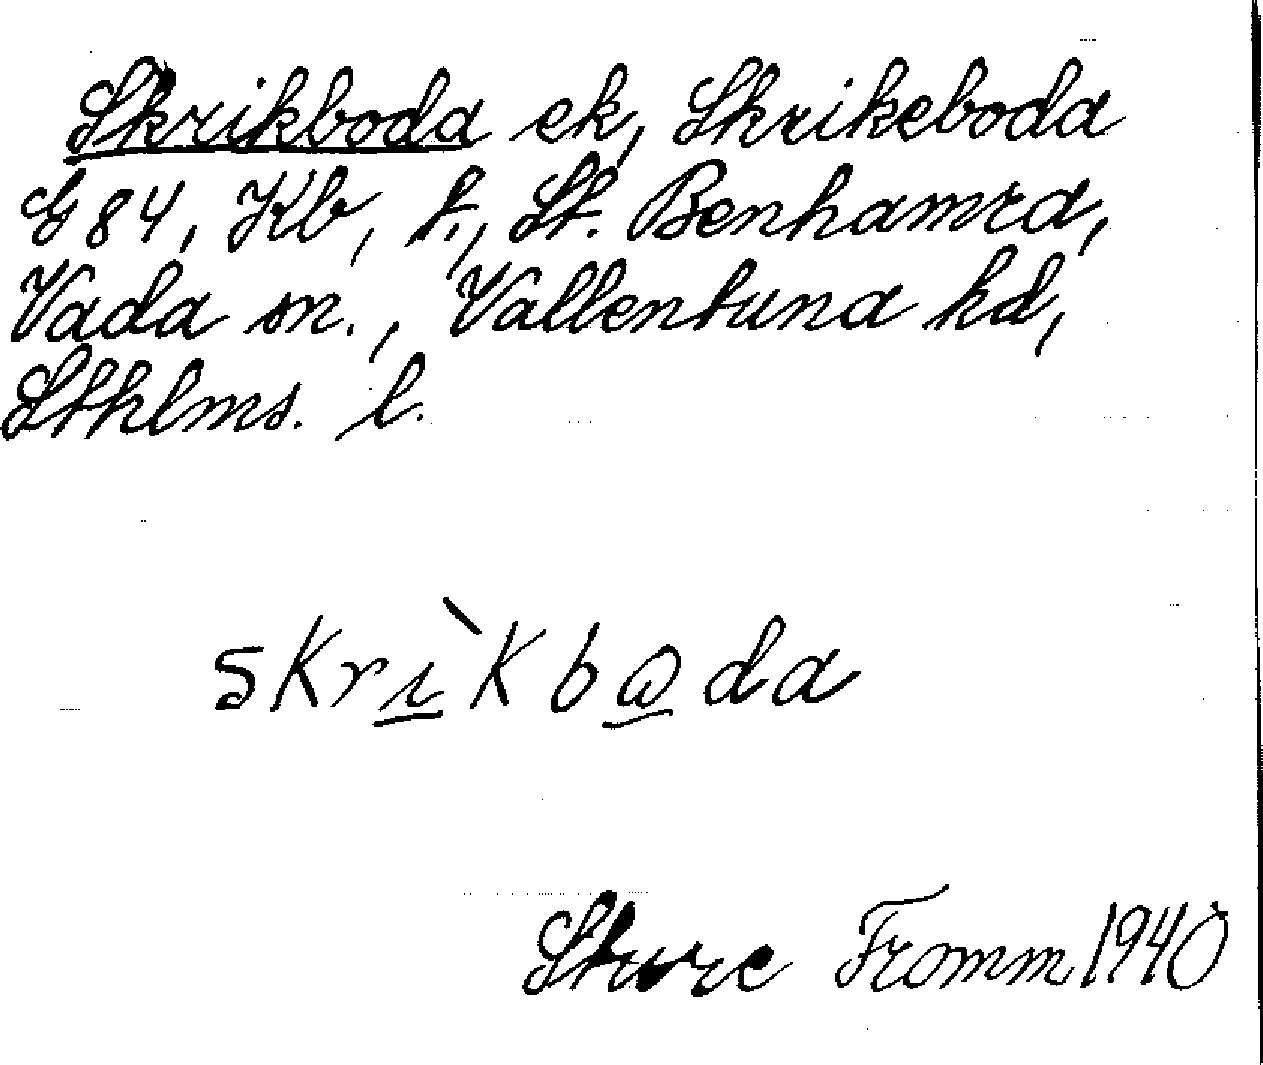 Skrikboda ek, Skrikeboda
G 84, Kb, t., St. Benhamra,
Vada sn., Vallentuna hd,
Sthlms. l.
skrı̲̀kbɷ̲da
Sture Fromm 1940